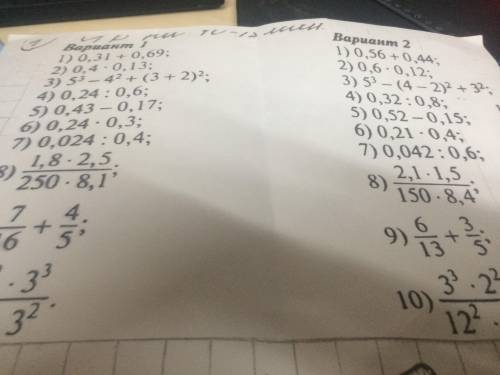 Вариант 1
1) 0,31 + 0,69;
2) 0,4 · 0,13;
3) 5³ – 4² + (3 + 2)²;
4) 0,24 : 0,6;
5) 0,43 – 0,17;
6) 0,24 · 0,3;
7) 0,024 : 0,4;
8) 1,8 · 2,5 / 250 · 8,1;
7/16 + 4/5;
· 3³ / 3².
Вариант 2
1) 0,56 + 0,44;
2) 0,6 · 0,12;
3) 5³ – (4 – 2)² + 3²;
4) 0,32 : 0,8;
5) 0,52 – 0,15;
6) 0,21 · 0,4;
7) 0,042 : 0,6;
8) 2,1 · 1,5 / 150 · 8,4;
9) 6/13 + 3/5;
10) 3³ · 2² / 12².